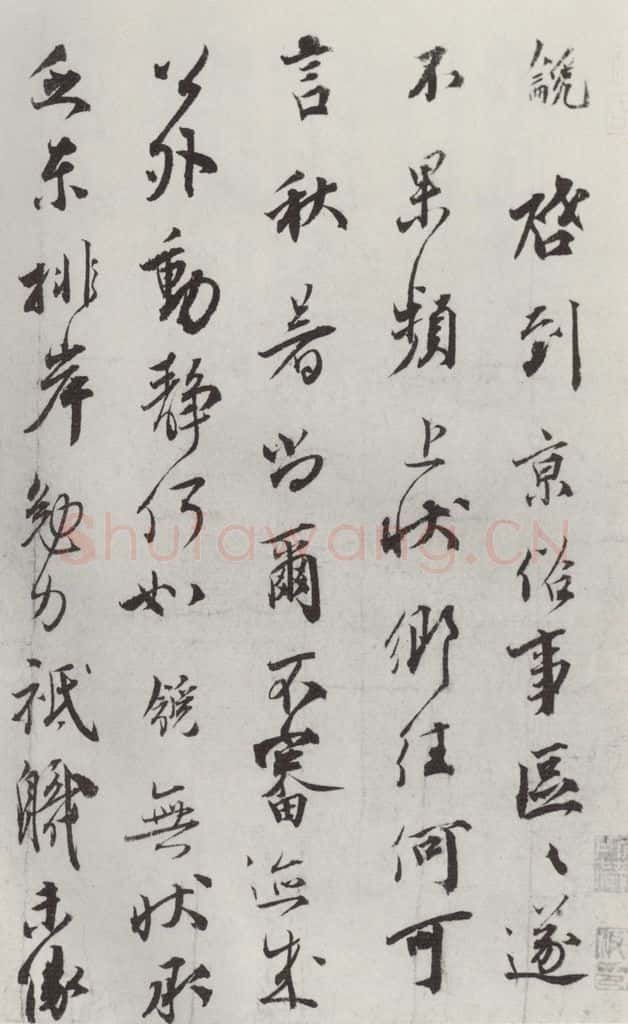 觬啓到京俗事區〻遂
不果頻上狀鄉往何可
言秋暑尚爾不審邇來
以外動靜何如觬無狀承
乏東排岸勉力祗職未緣
Shufawang.CN